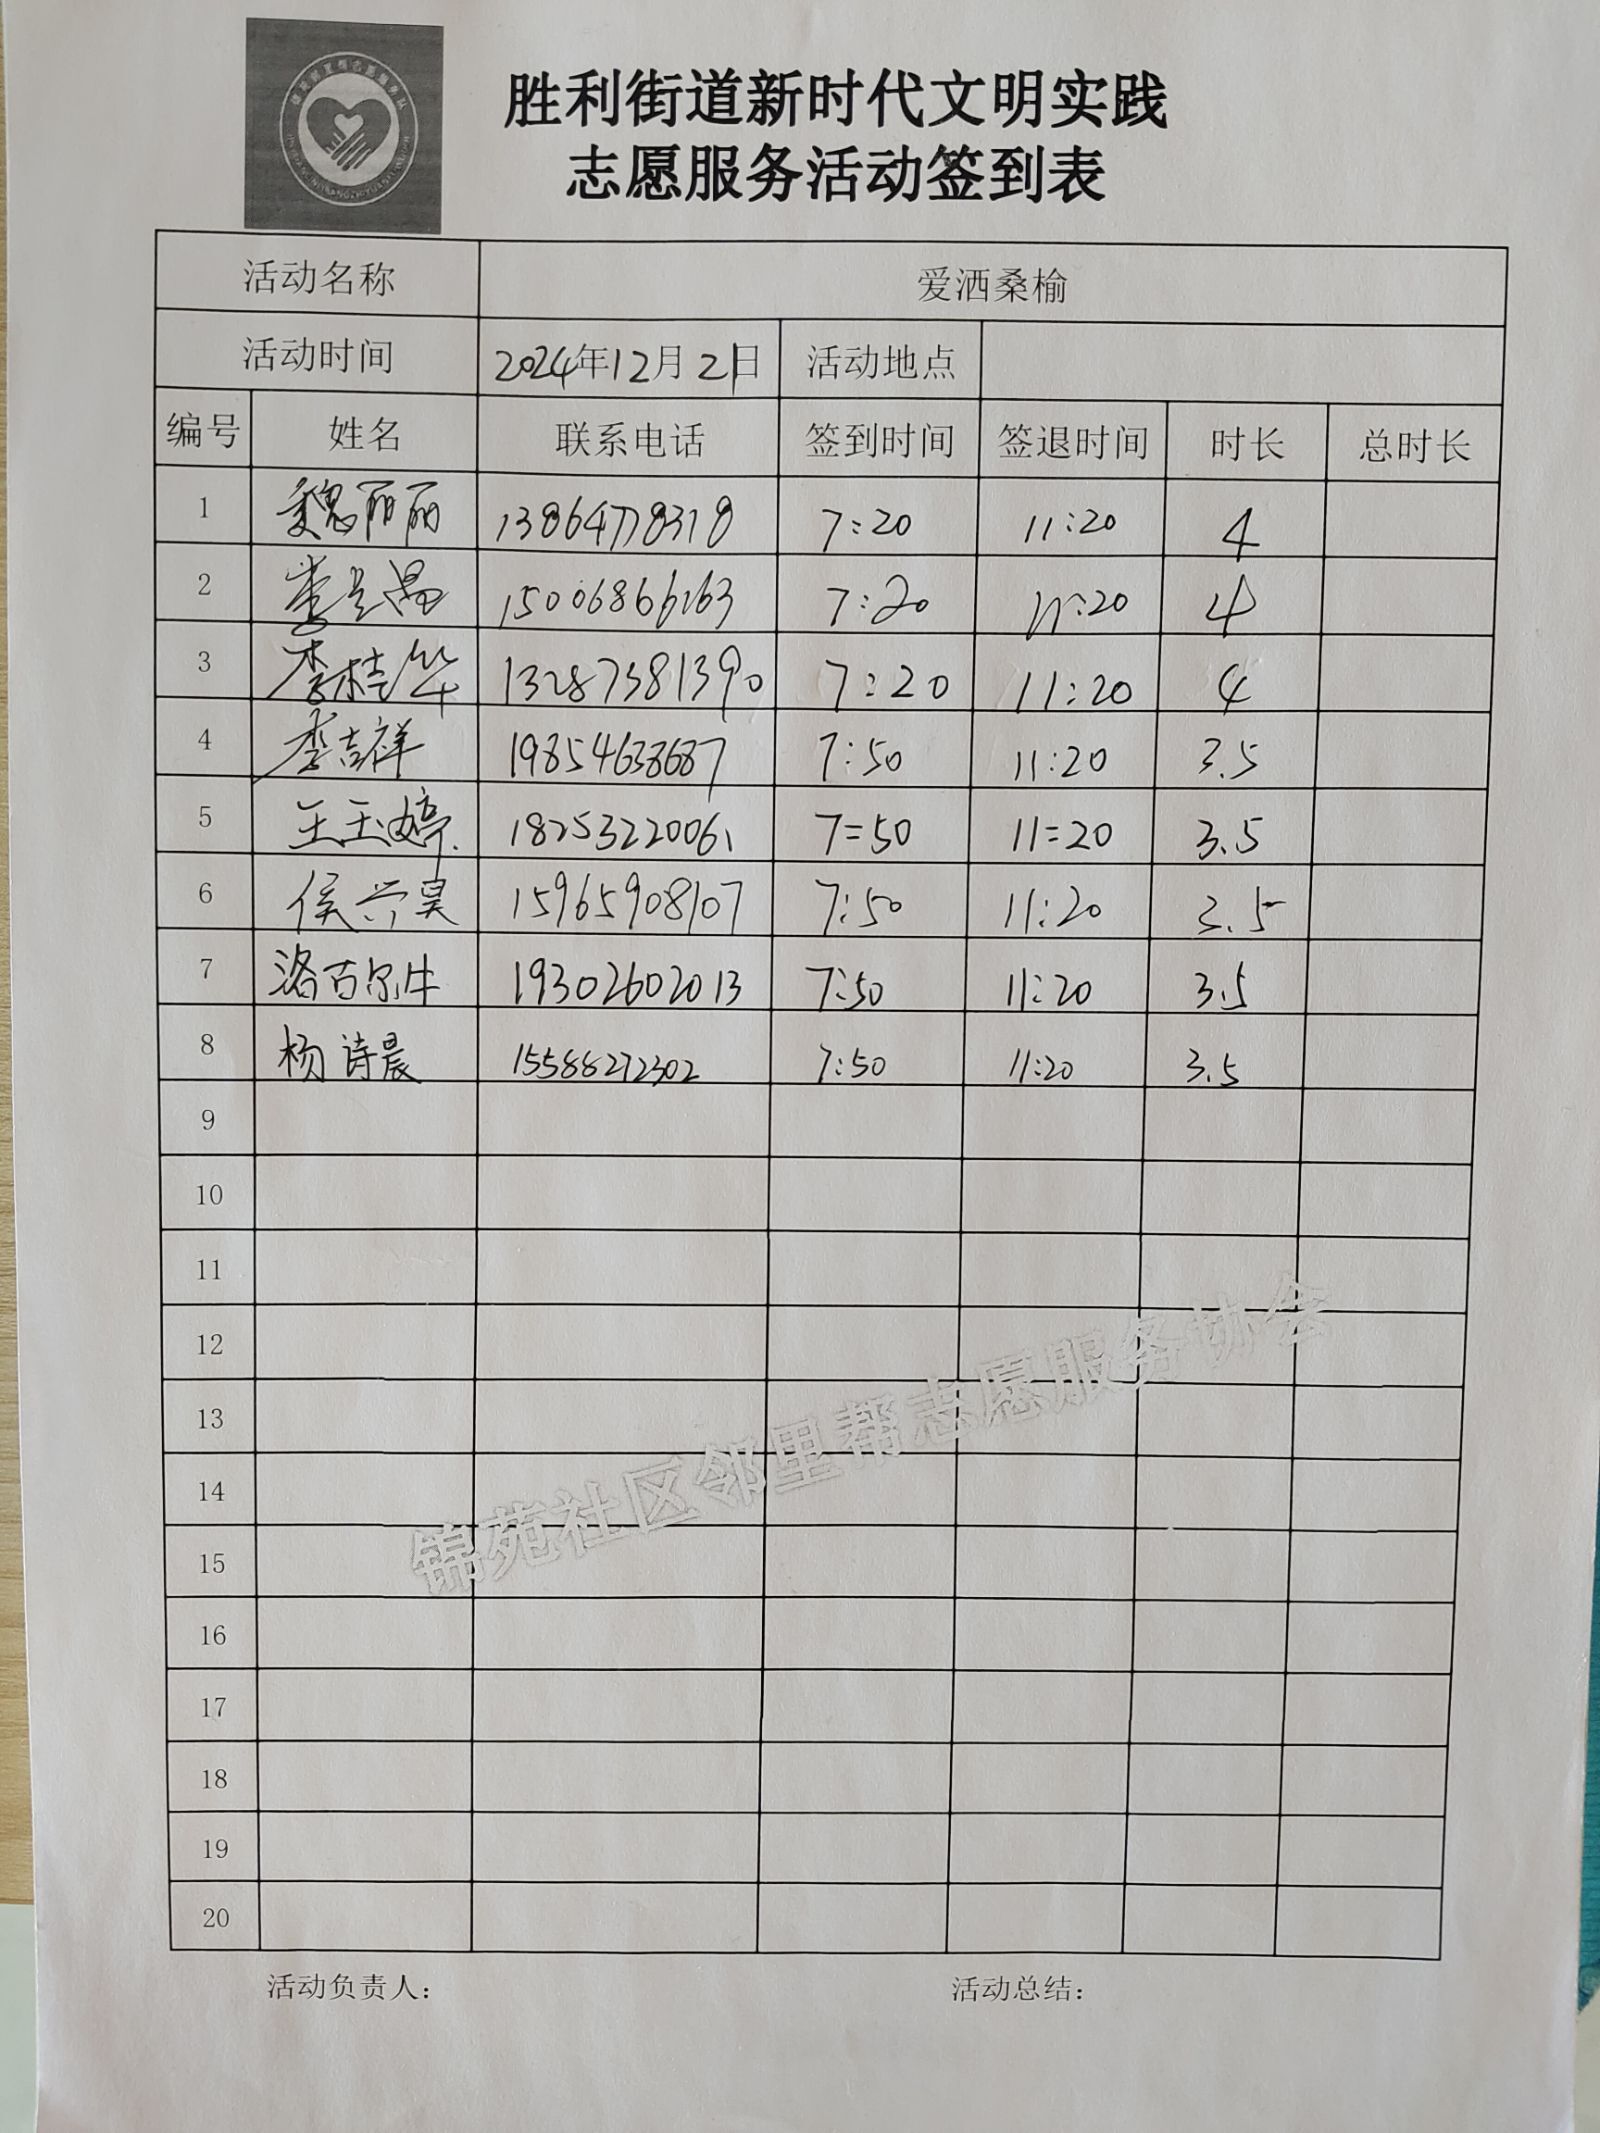 胜利街道新时代文明实践
志愿服务活动签到表
活动名称 爱洒桑榆
活动时间 2024年12月21日 活动地点
编号 姓名 联系电话 签到时间 签退时间 时长 总时长
1 魏丽丽 13864778318 7:20 11:20 4
2 15006866163 7:20 11:20 4
3 李桂华 13287381390 7:20 11:20 4
4 李吉祥 19854638687 7:50 11:20 3.5
5 王玉婷 18253220061 7=50 11=20 3.5
6 侯兴昊 15965908107 7:50 11:20 3.5
7 洛古尔牛 19302602013 7:50 11:20 3.5
8 杨诗晨 15588272302 7:50 11:20 3.5
9
10
11
12
13
14
15
16
17
18
19
20
锦苑社区邻里帮志愿服务协会
活动负责人： 活动总结：